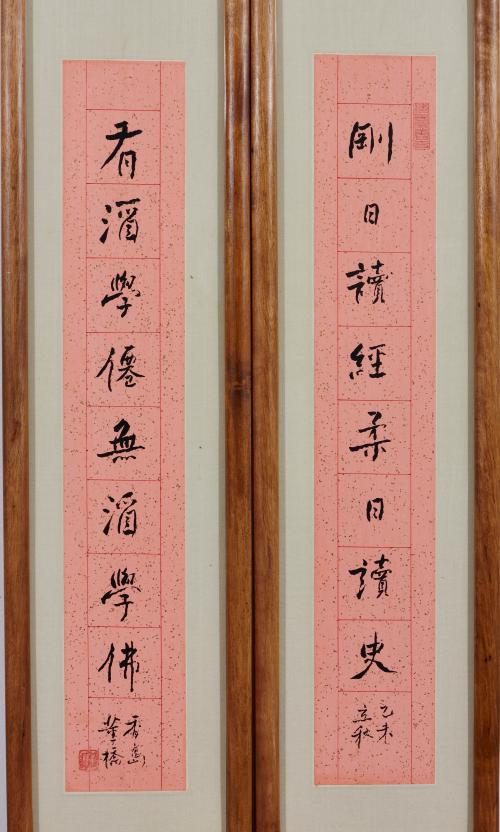 剛日讀經柔日讀史
乙未
立秋
有酒學僊無酒學佛
香島
董橋